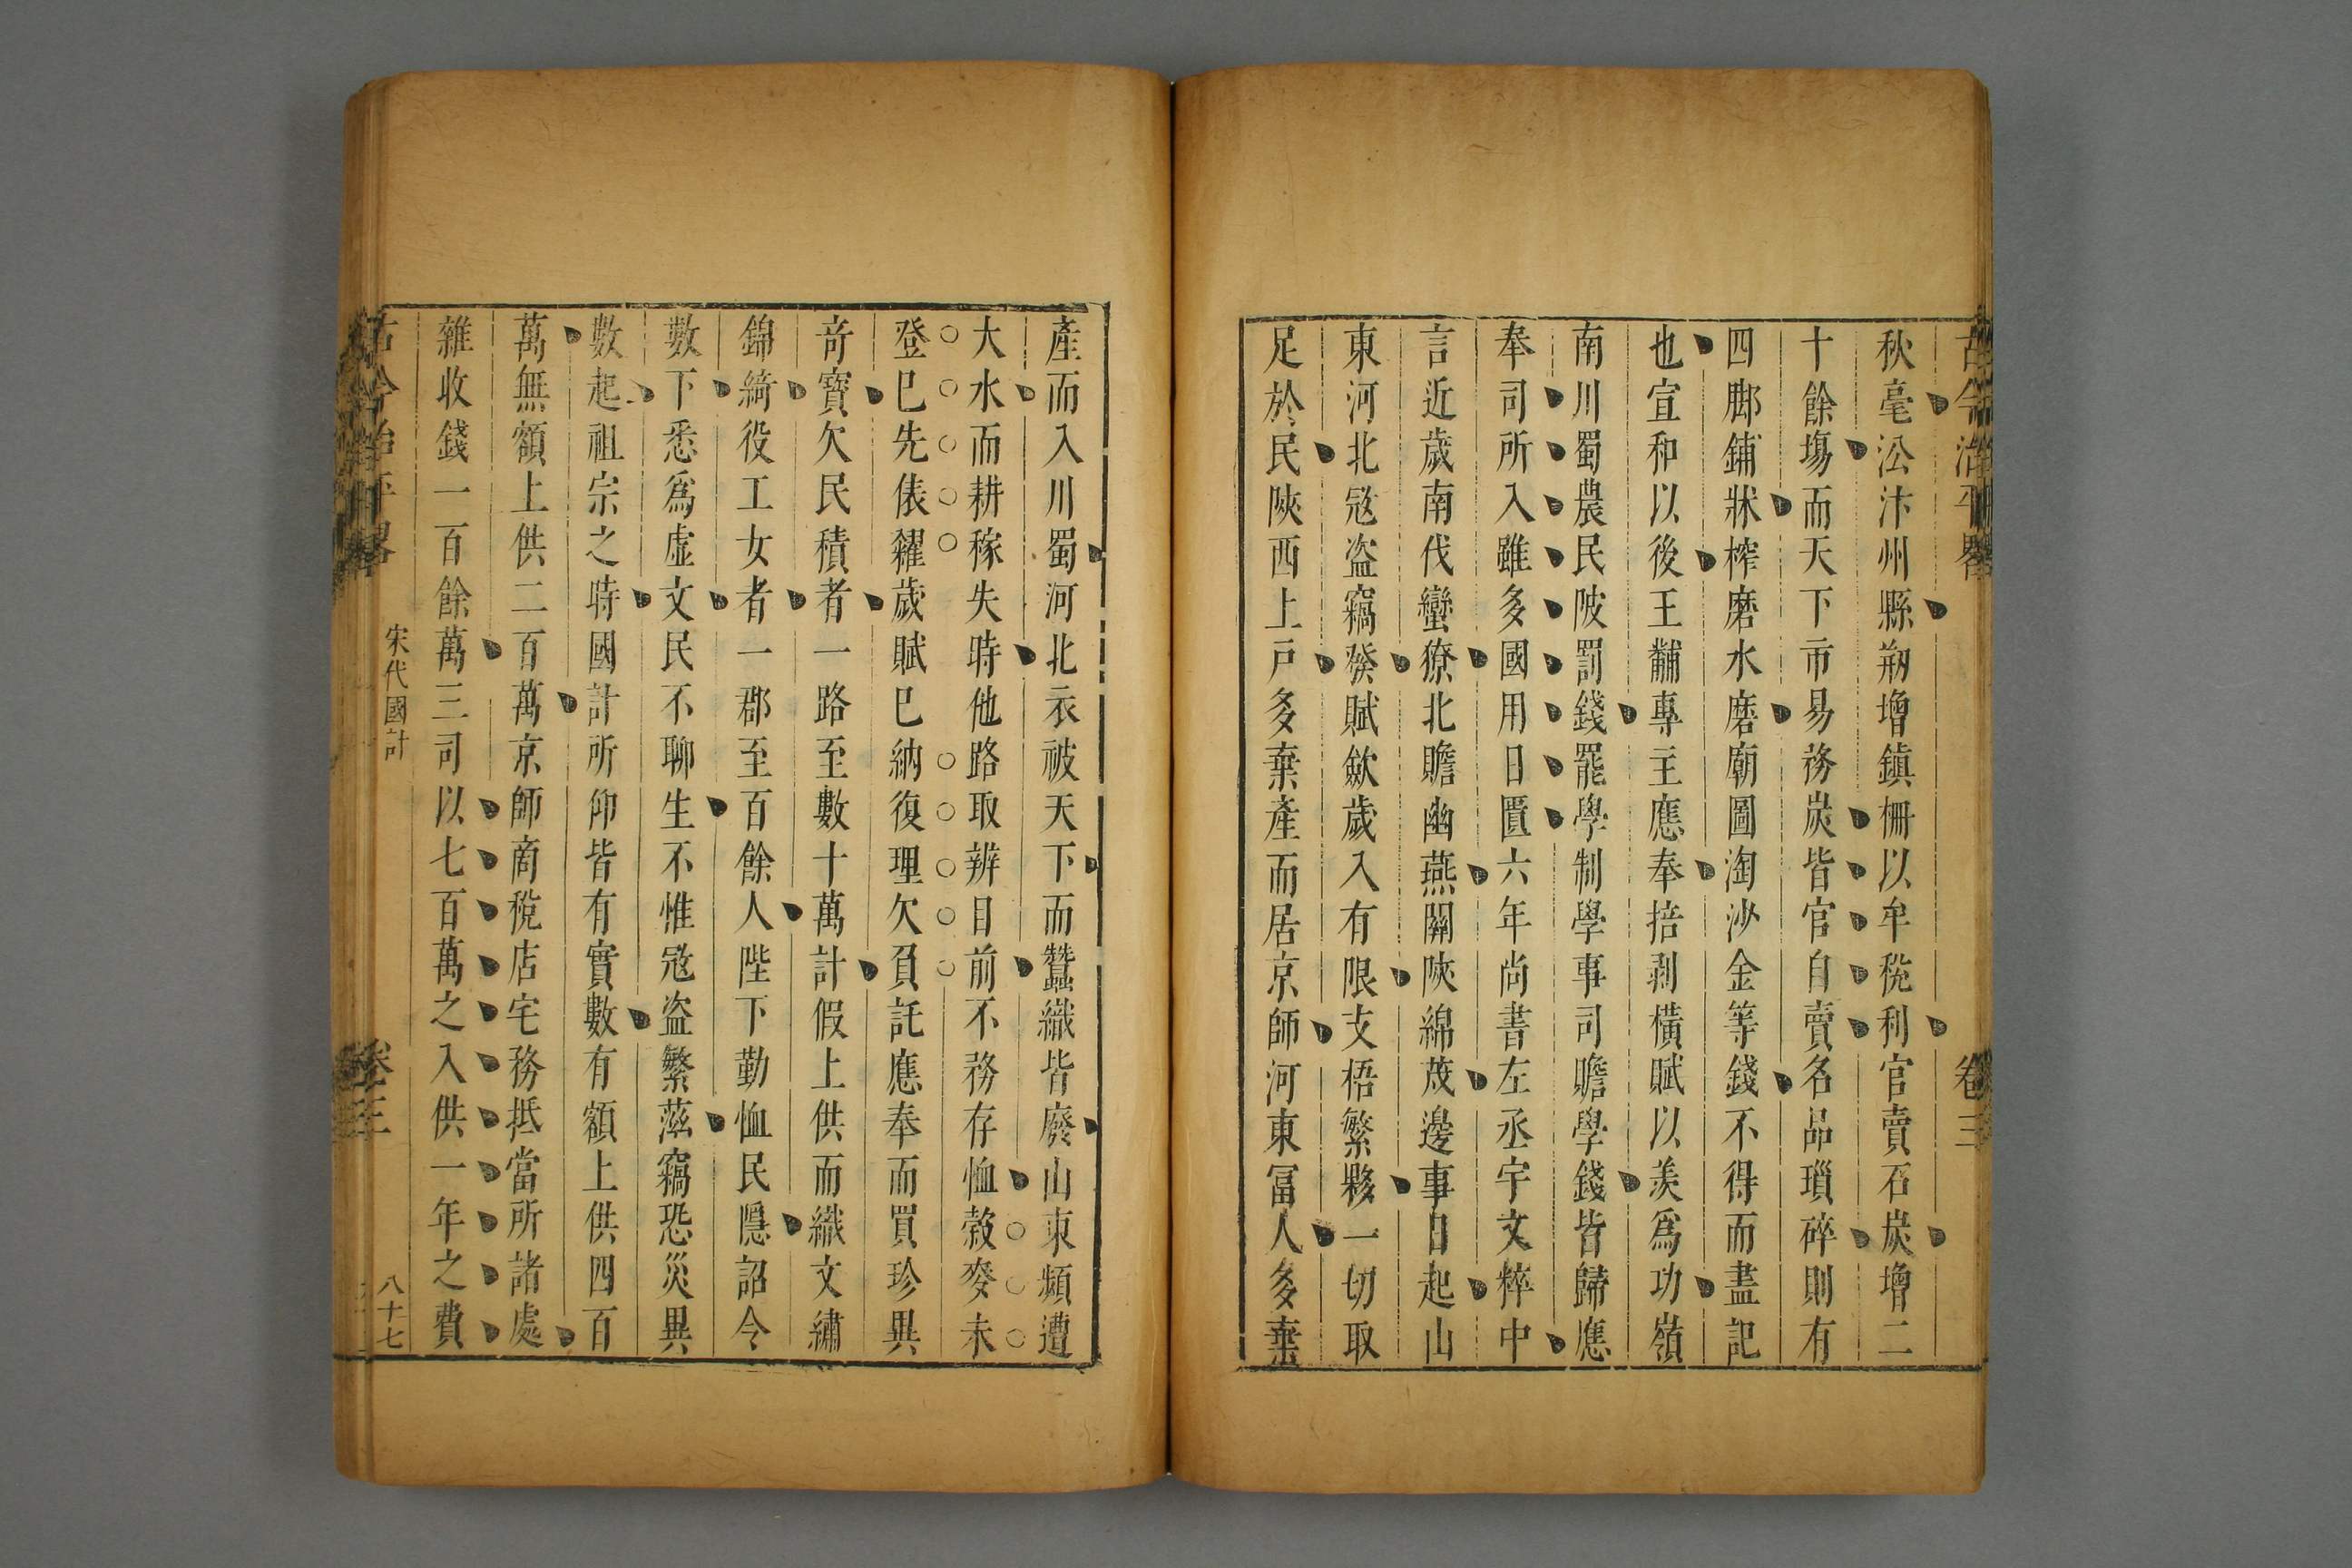 古今治平畧
卷三
秋毫㳂汴州縣剏增鎮柵以牟稅利官賣石炭增二
十餘場而天下市易務炭皆官自賣名品瑣碎則有
四脚鋪牀榨磨水磨廟圖淘沙金等錢不得而盡記
也宣和以後王黼專主應奉掊剥横賦以羨爲功嶺
南川蜀農民陂罰錢罷學制學事司贍學錢皆歸應
奉司所入雖多國用日匱六年尚書左丞宇文粹中
言近歲南伐蠻獠北贍幽燕關陝綿茂邊事日起山
東河北冦盗竊發賦歛歲入有限支梧繁夥一切取
足於民陝西上戸多棄產而居京師河東冨人多棄
產而入川蜀河北衣被天下而蠶織皆廢山東頻遭
大水而耕稼失時他路取辨目前不務存恤榖麥未
登巳先俵糴歲賦巳納復理欠負託應奉而買珍異
竒寳欠民積者一路至數十萬計假上供而織文繡
錦綺役工女者一郡至百餘人陛下勤恤民隱詔令
數下悉爲虛文民不聊生不惟冦盗繁滋竊恐災異
數起祖宗之時國計所仰皆有實數有額上供四百
萬無額上供二百萬京師商稅店宅務抵當所諸處
雜收錢一百餘萬三司以七百萬之入供一年之費
古今治平畧
宋代國計
卷三
八十七